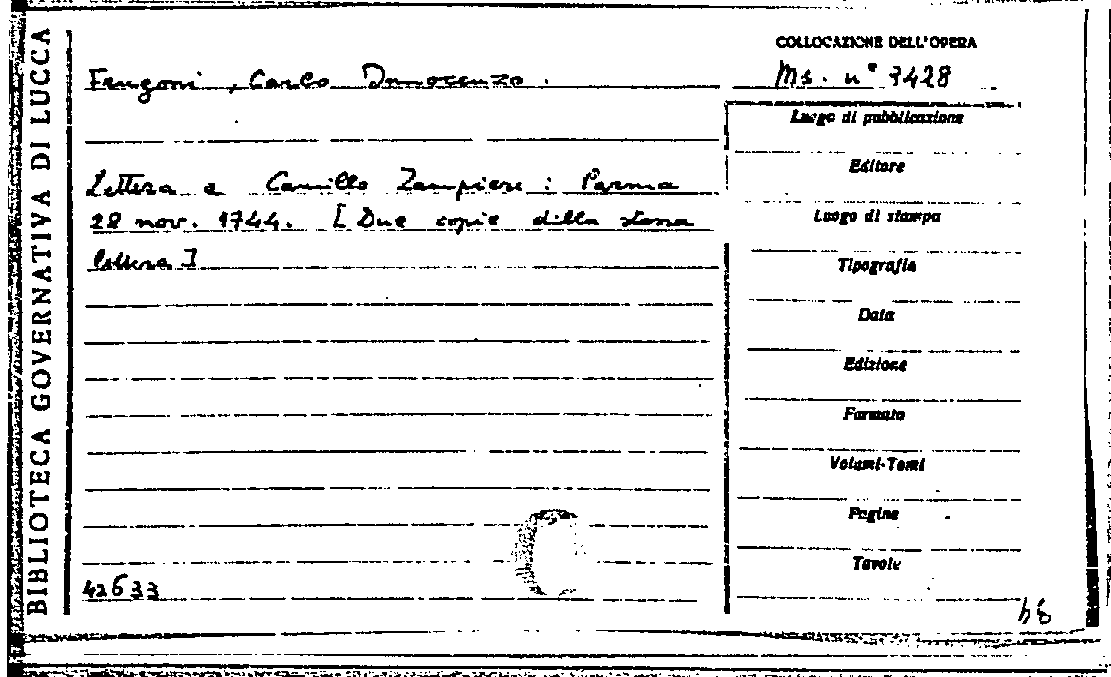 BIBLIOTECA GOVERNATIVA DI LUCCA
COLLOCAZIONE DELL'OPERA
Frugoni, Carlo Innocenzo.
Ms. n° 3428
Lettera a Camillo Zampieri: Parma
28 nov. 1744. [Due copie della stessa
lettera]
Luogo di pubblicazione
Editore
Luogo di stampa
Tipografia
Data
Edizione
Formato
Volumi-Tomi
Pagine
Tavole
42633